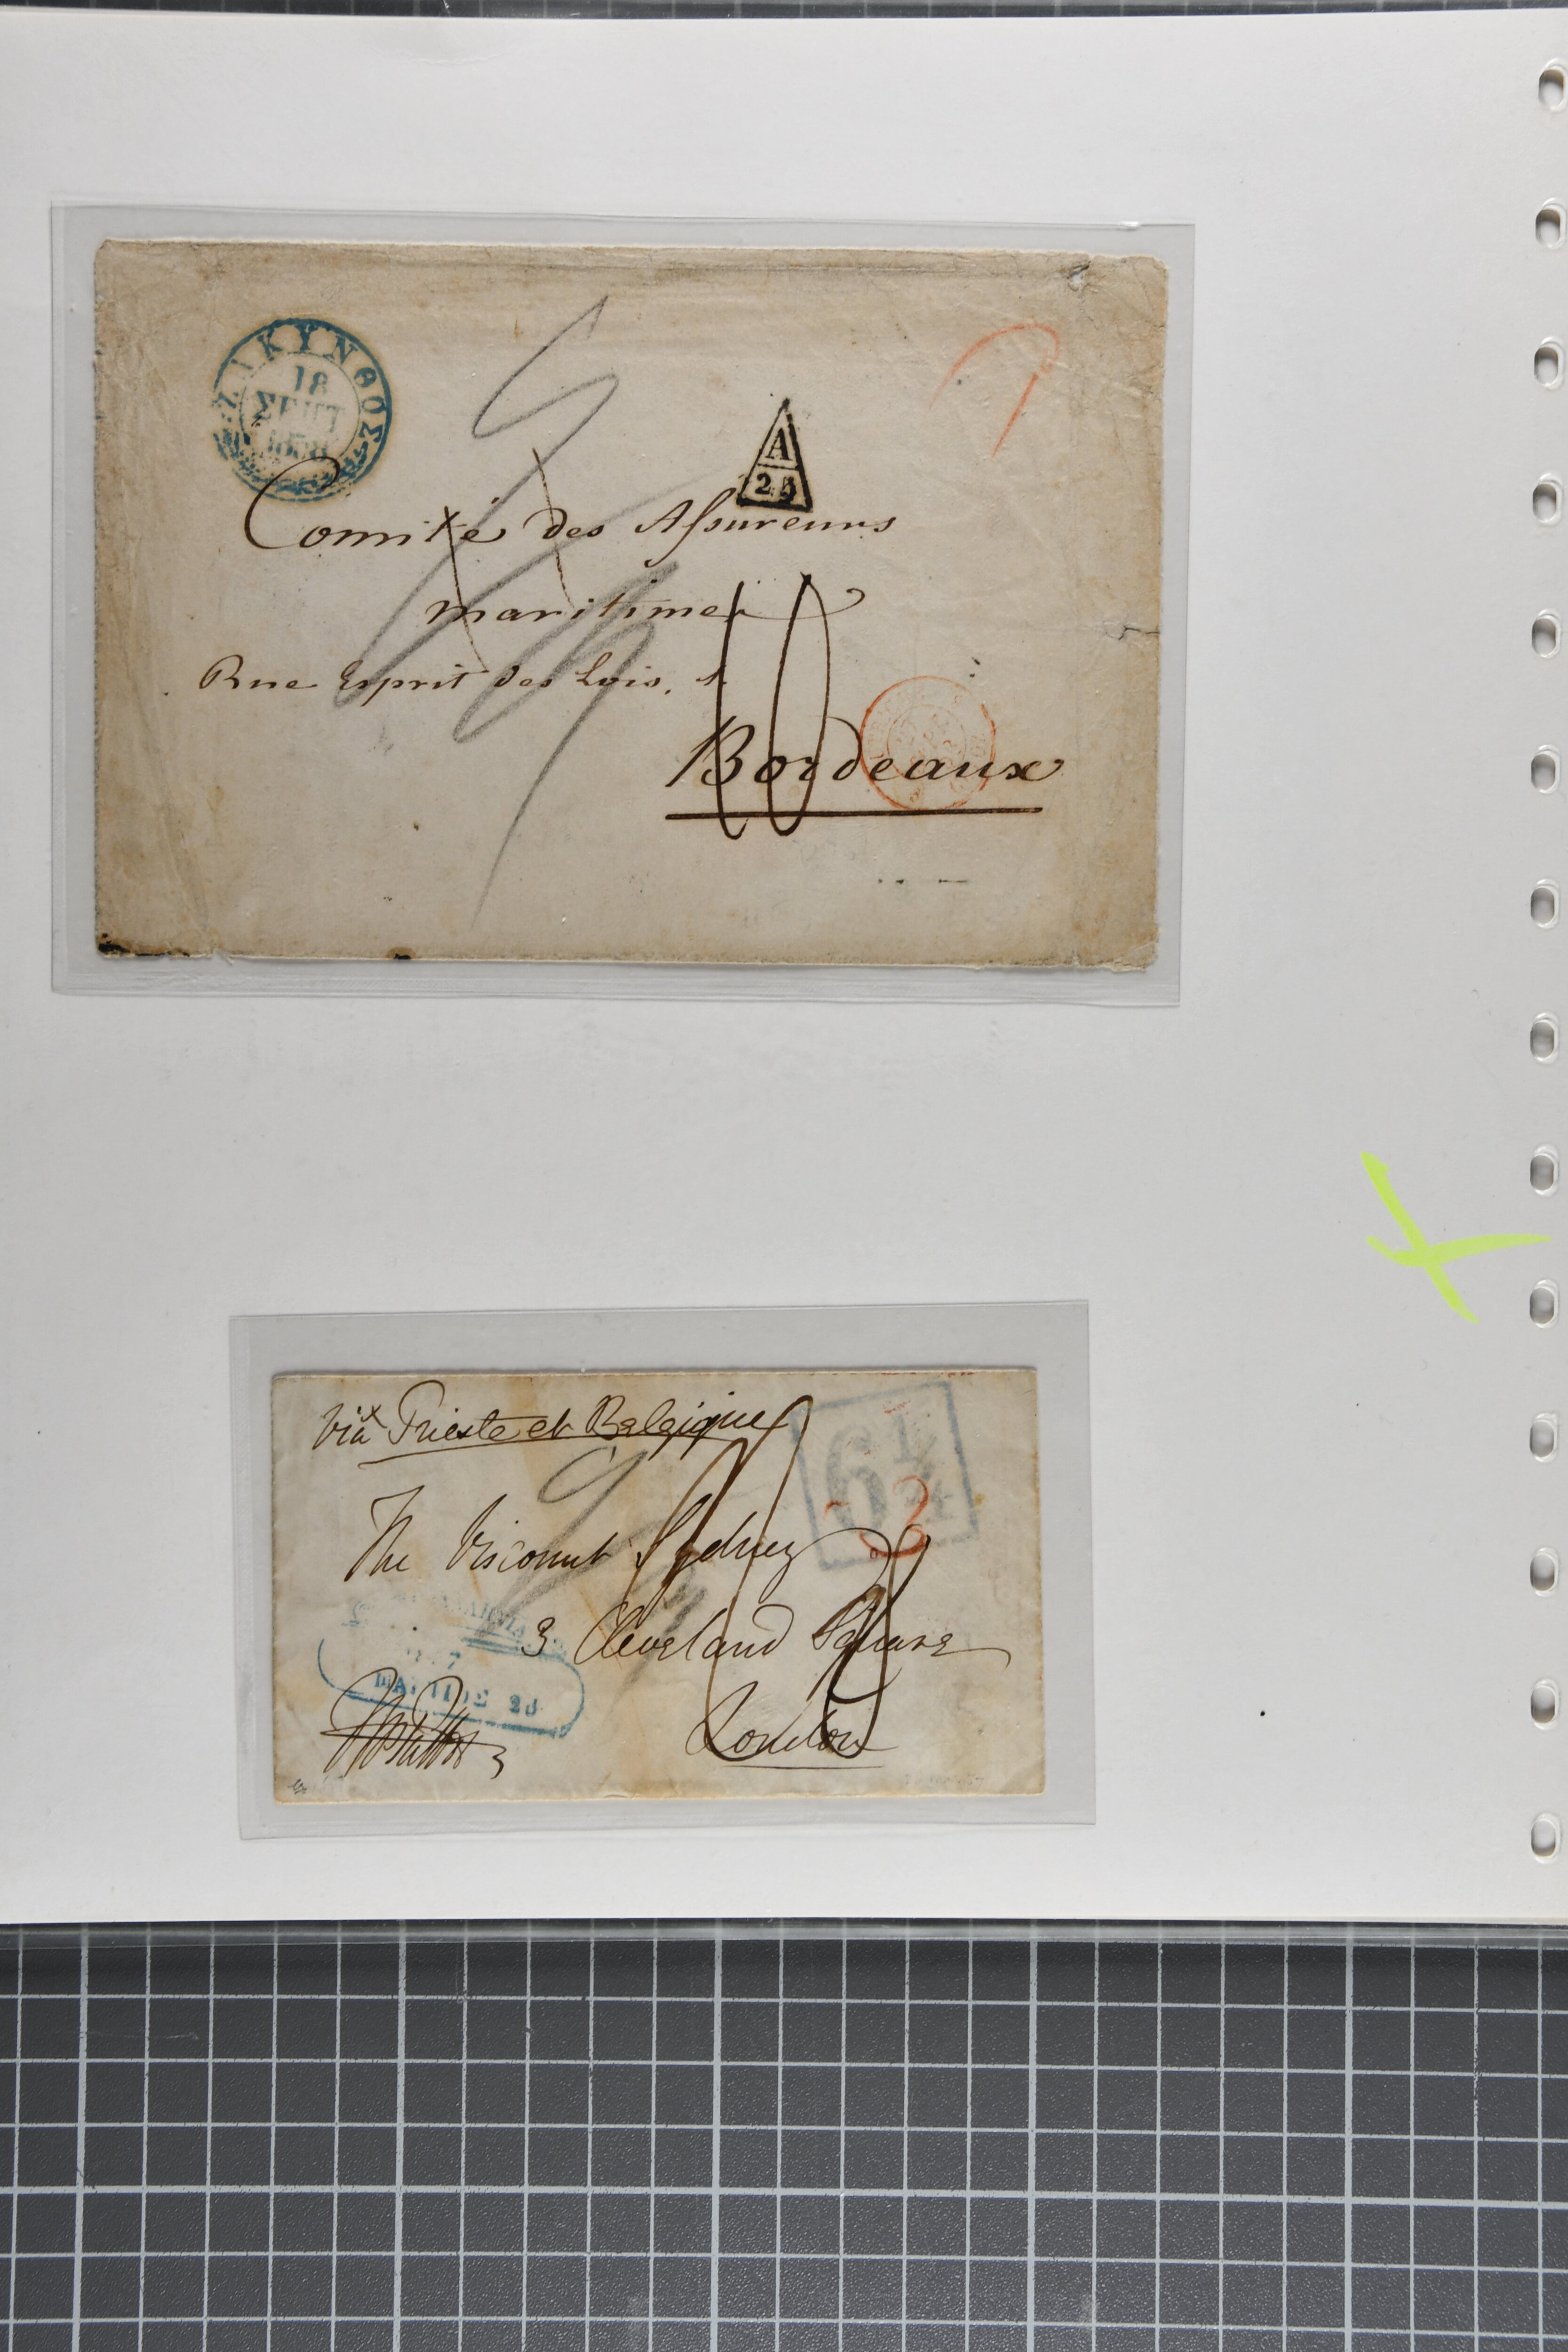 ΖΑΚΥΝΘΟΣ
18
ΣΕΠΤ
1858
A
25
Comité des Assureurs
maritimes
Rue Esprit des Lois, 1.
10
Bordeaux
via Trieste et Belgique
6 1/4
The Viscount Sydney
3 Cleveland Square
London
ΜΑΡΤΙΟΣ 28